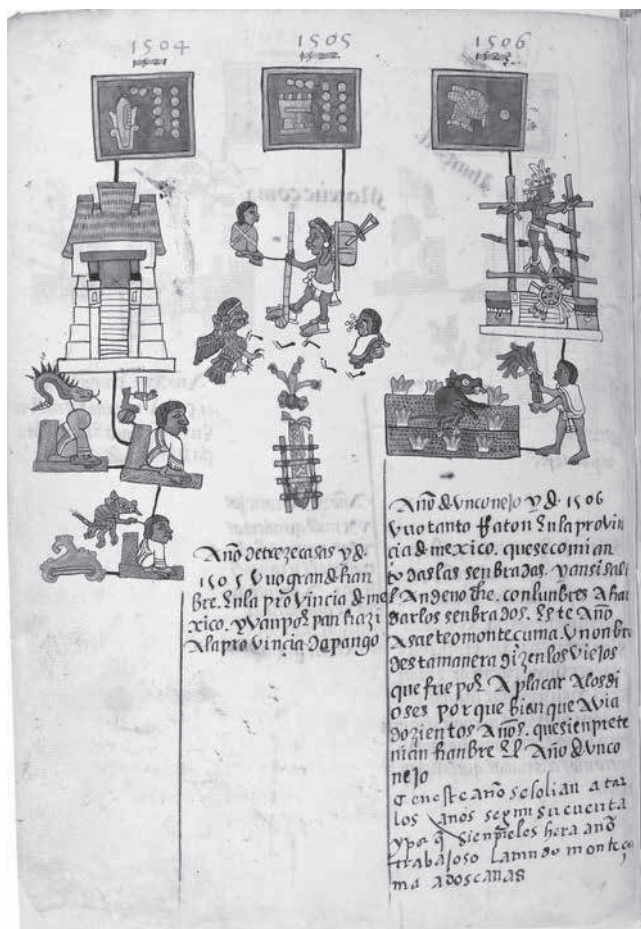 1504
1521
1505
1522
1506
1523
Año detrezecasas yd
1505 Vuo gran dhan
bre. Enla provincia d me
xico. yvan por pan hazi
Ala provincia dapango
Año dVnconejo yd 1506
Vuo tanto Raton Enla provin
cia d mexico. quesecomian
todaslas senbradas. yansi sali
An denoche. conlunbres Ahar
darlos senbrados. Este Año
Asaeteomonteçuma. Vnonbre
destamanera dizenlos viejos
que fue por Aplacar Alosdi
oses porque bian que Avia
dozientos Años. quesienprete
nian hanbre El Año dVnco
nejo
en este año se solian atar
los años segun su cuenta
ypor q̄ sienpreles hera año
trabajoso la mudo monteçu
ma a dos cañas